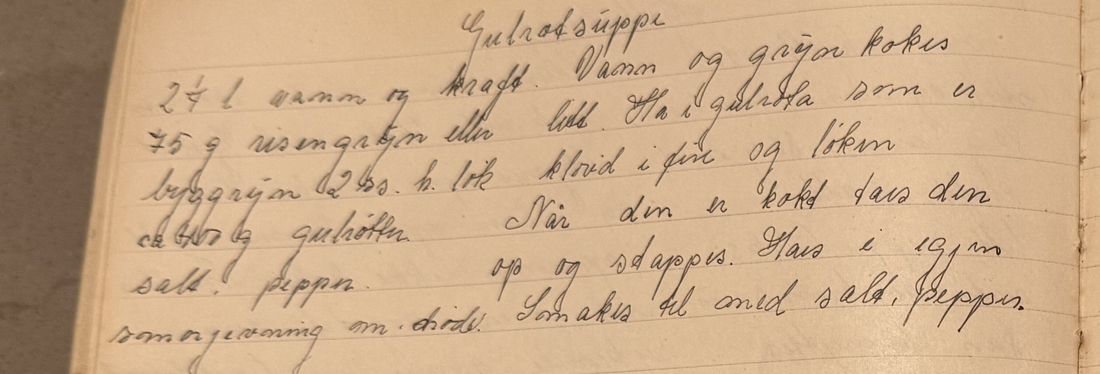 Gulrotsuppe
2 1/4 l vann og kraft. Vann og grýn kokes
75 g risengrýn eller litt. Ha i gulrota som er
byggrýn 2 ss. h. løk kløvd i fire og løken
ca g gulrøtter. Når den er kokt taes den
salt, pepper. op og stappes. Haes i igjen
smørjevning m. brød. Smakes til med salt, pepper.